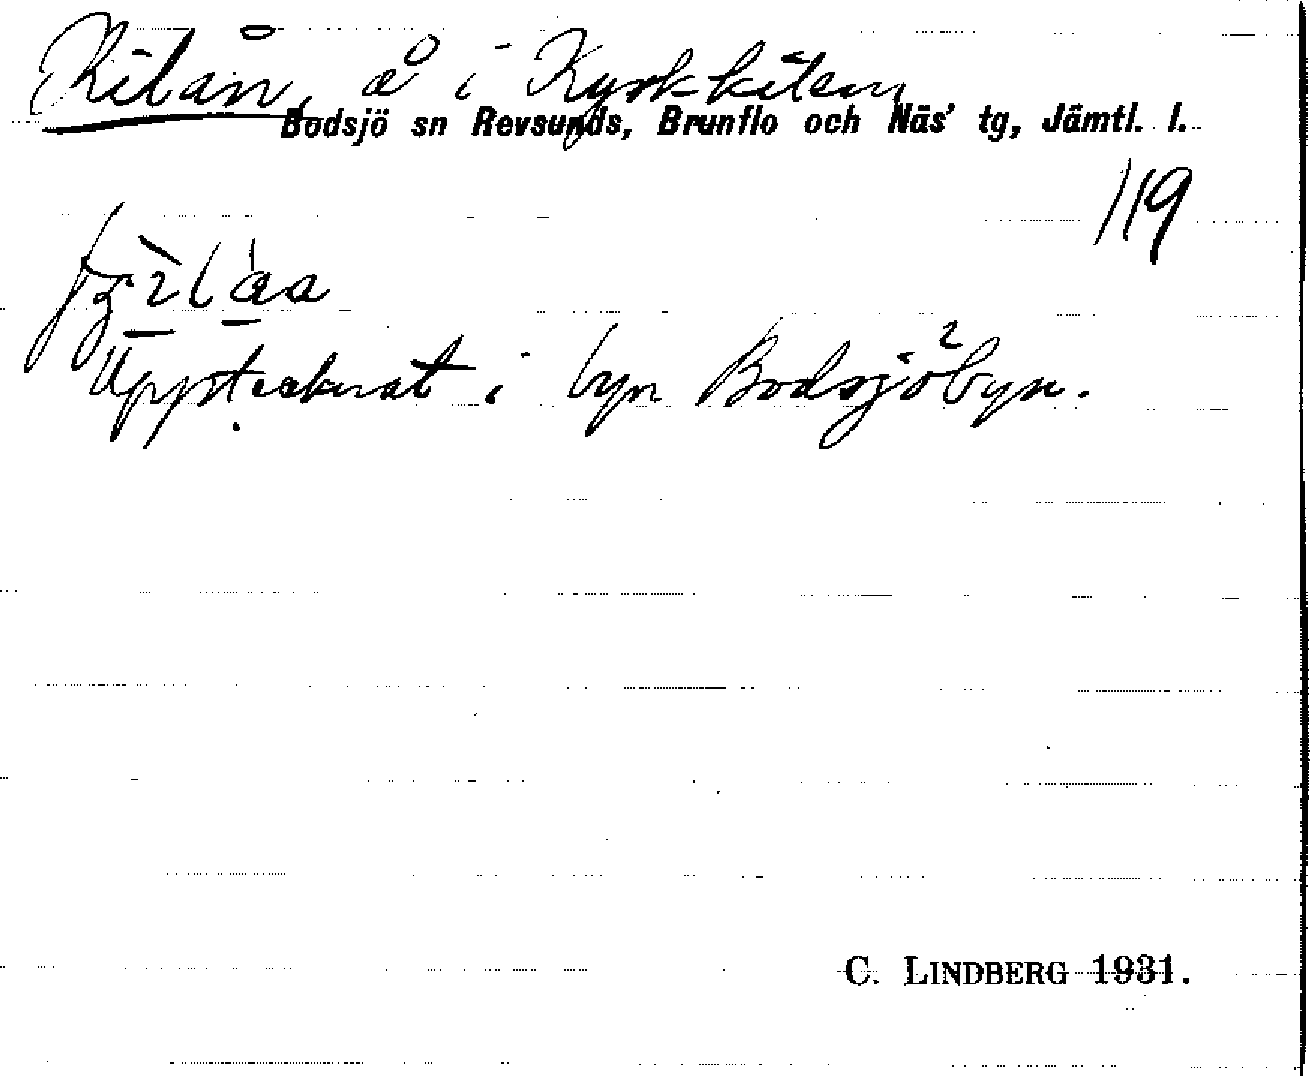 Kilån, å i Kyrkkilen
Bodsjö sn Revsunds, Brunflo och Näs' tg, Jämtl. l.
119
Upptecknat i byn Bodsjöbyn.
C. LINDBERG 1931.